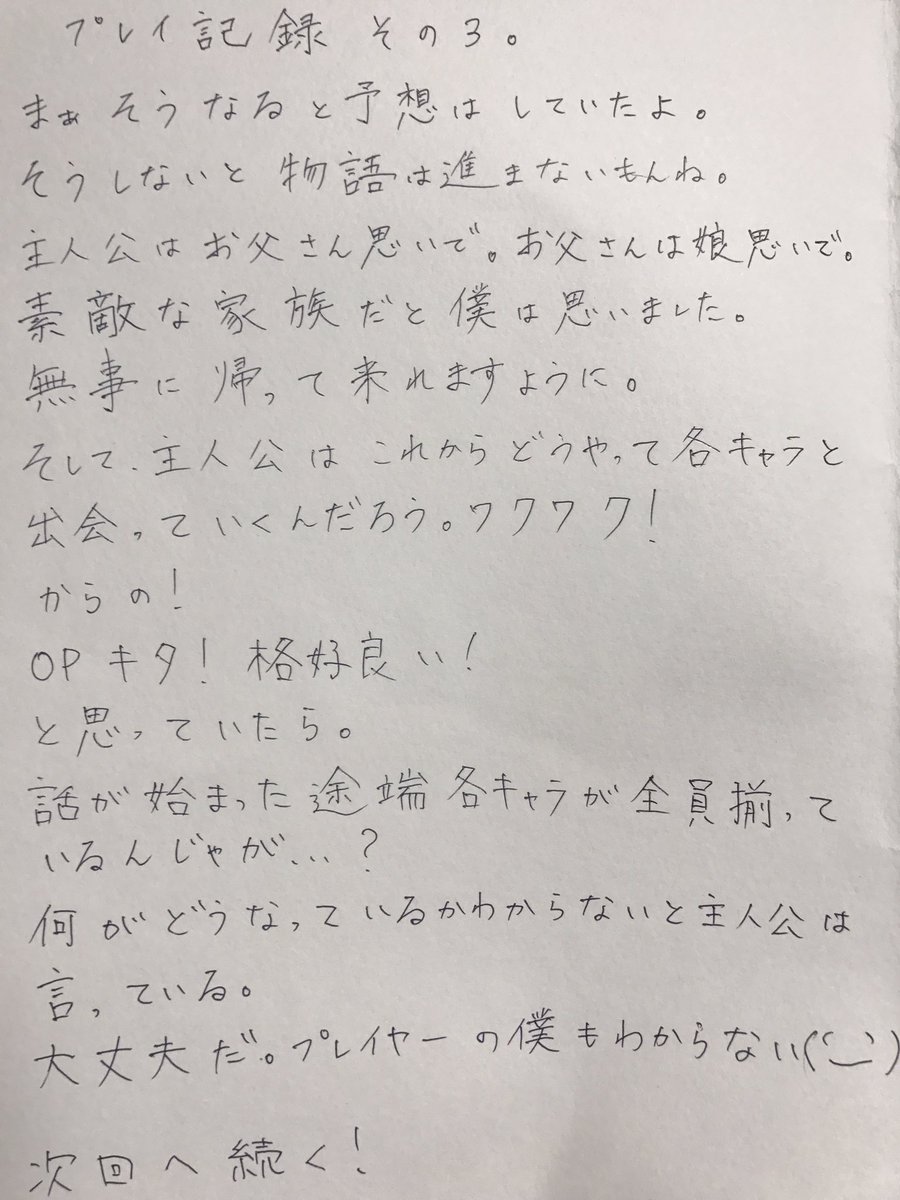 プレイ記録 その3。
まぁそうなると予想はしていたよ。
そうしないと物語は進まないもんね。
主人公はお父さん思いで。お父さんは娘思いで。
素敵な家族だと僕は思いました。
無事に帰って来れますように。
そして、主人公はこれからどうやって各キャラと
出会っていくんだろう。ワクワク!
からの!
OPキタ! 格好良い!
と思っていたら。
話が始まった途端各キャラが全員揃って
いるんじゃが…?
何がどうなっているかわからないと主人公は
言っている。
大丈夫だ。プレイヤーの僕もわからない('ー')
次回へ続く!